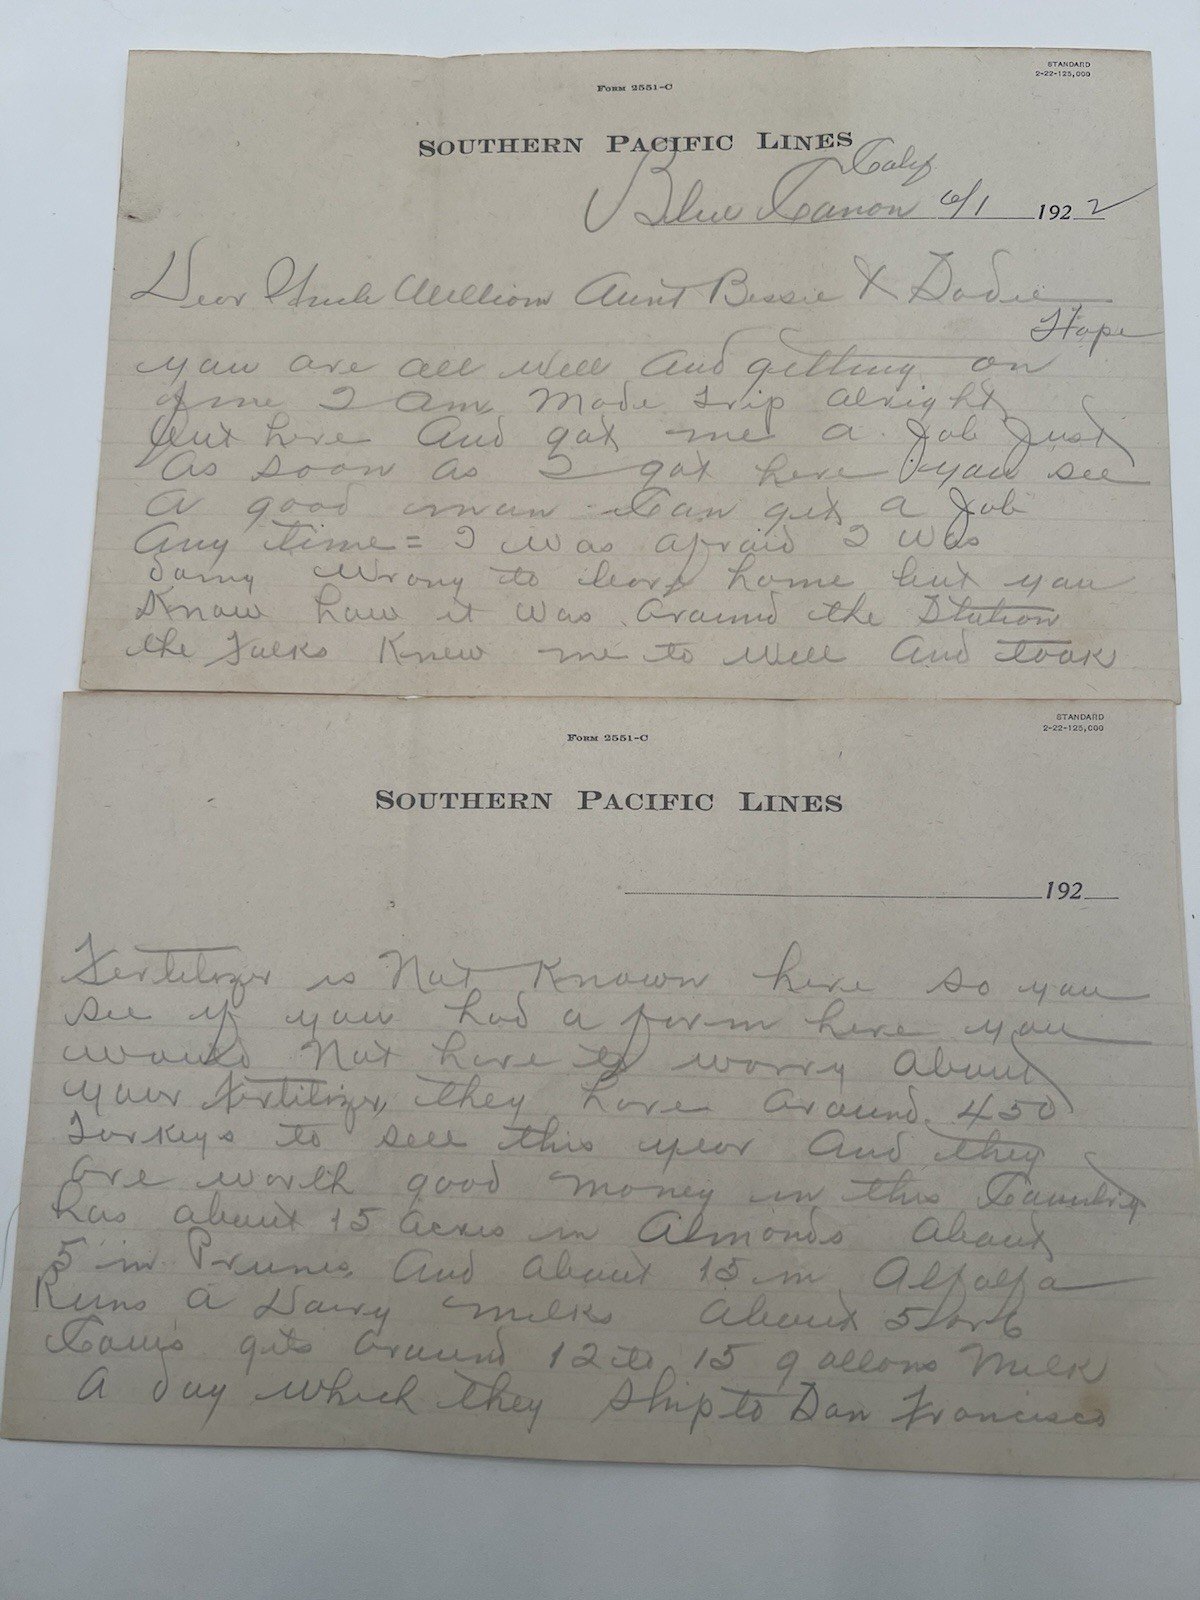 STANDARD
2-22-125,000
FORM 2551-C
SOUTHERN PACIFIC LINES
Calif
Blue Canon 6/1 1922
Dear Uncle William Aunt Bessie & Dodie
Hope
you are all well and getting on
fine I am. Made trip alright
out here and got me a Job Just
as soon as I got here you see
A good man Can get a Job
Any time = I was afraid I was
doing wrong to leave home but you
Know how it was around the Station
the Folks Knew me to well and took
STANDARD
2-22-125,000
FORM 2551-C
SOUTHERN PACIFIC LINES
192
Fertilizer is Not Known here so you
see if you had a farm here you
would Not have to worry about
your Fertilizer, they have around 450
Turkeys to sell this year and they
are worth good money in this Country
has about 15 acres in Almonds about
5 in Prunes and about 15 in Alfalfa
Runs a Dairy milks about 5 or 6
Cows gets around 12 to 15 gallons Milk
A day which they ship to San Francisco